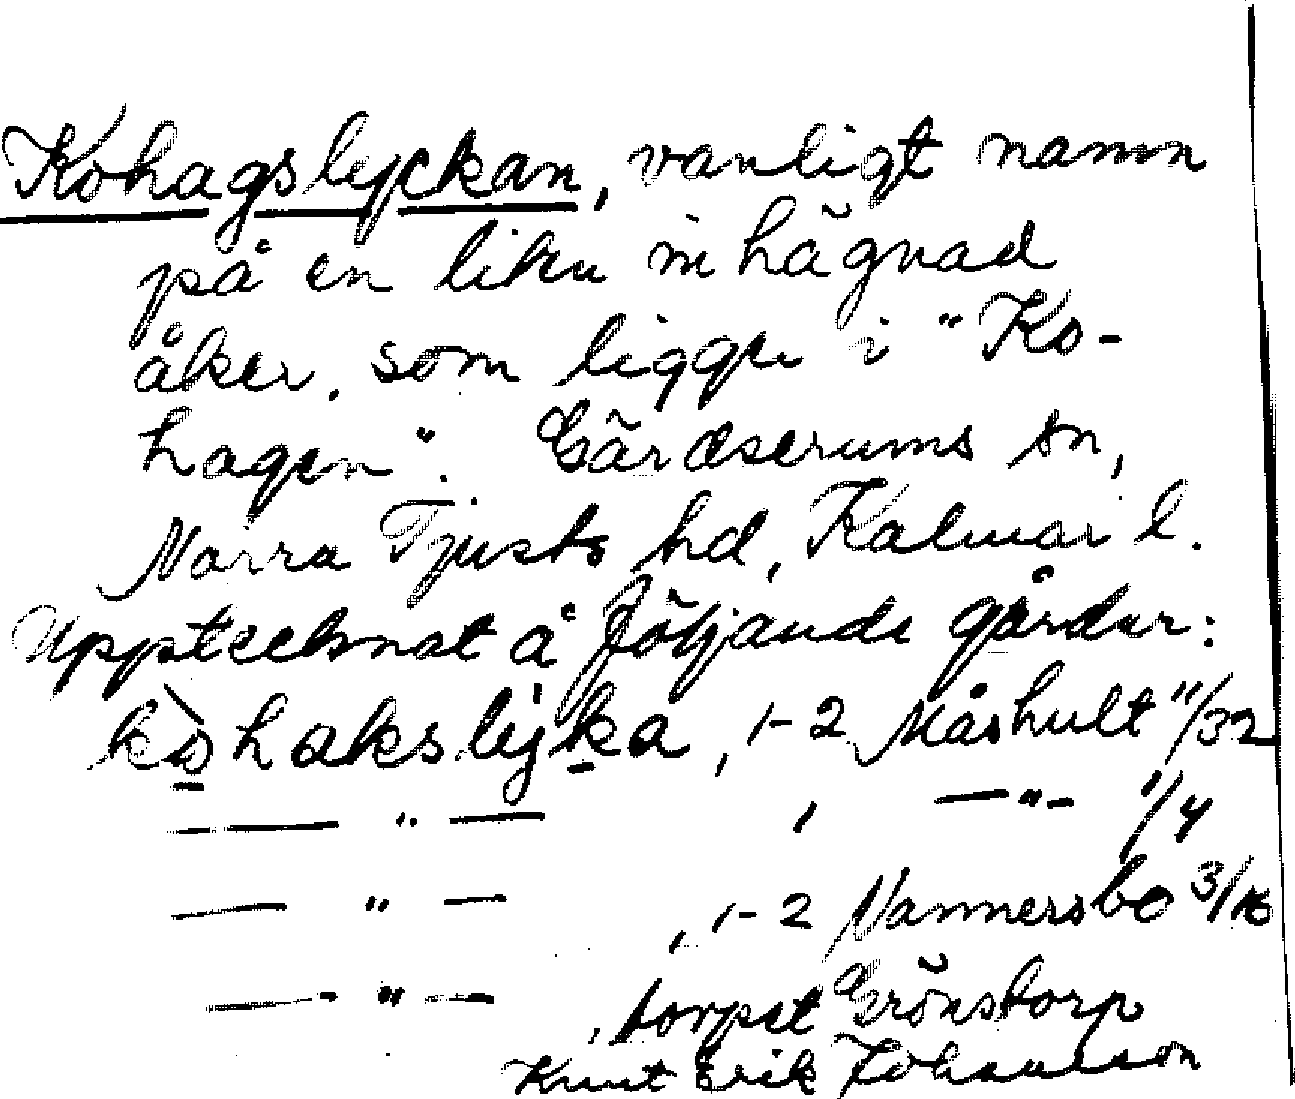 Kohagslyckan, vanligt namn
på en liten inhägnad
åker, som ligger i "Ko-
hagen". Gärdserums sn,
Norra Tjusts hd, Kalmar l.
Upptecknat å följande gårdar:
kòhakslỳka, 1-2 Måshult 11/32
— " — , — " — 1/4
— " — , 1-2 Nannersbo 3/16
— " — , torpet Grönstorp
Knut Erik Johansson